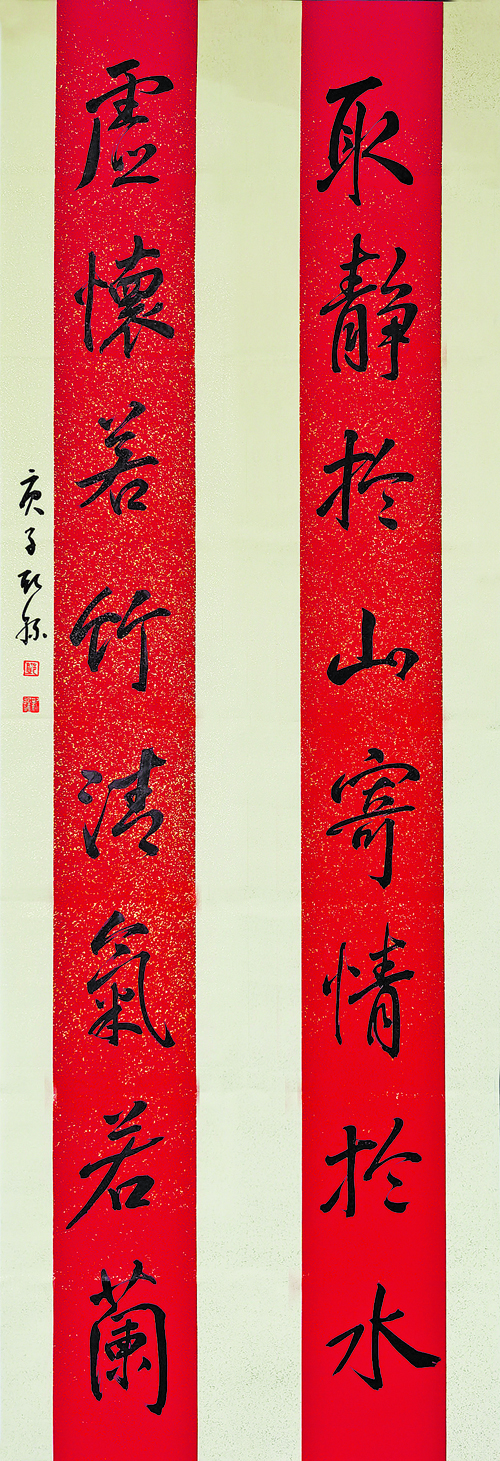 取静於山寄情於水
虚懷若竹清氣若蘭
庚子